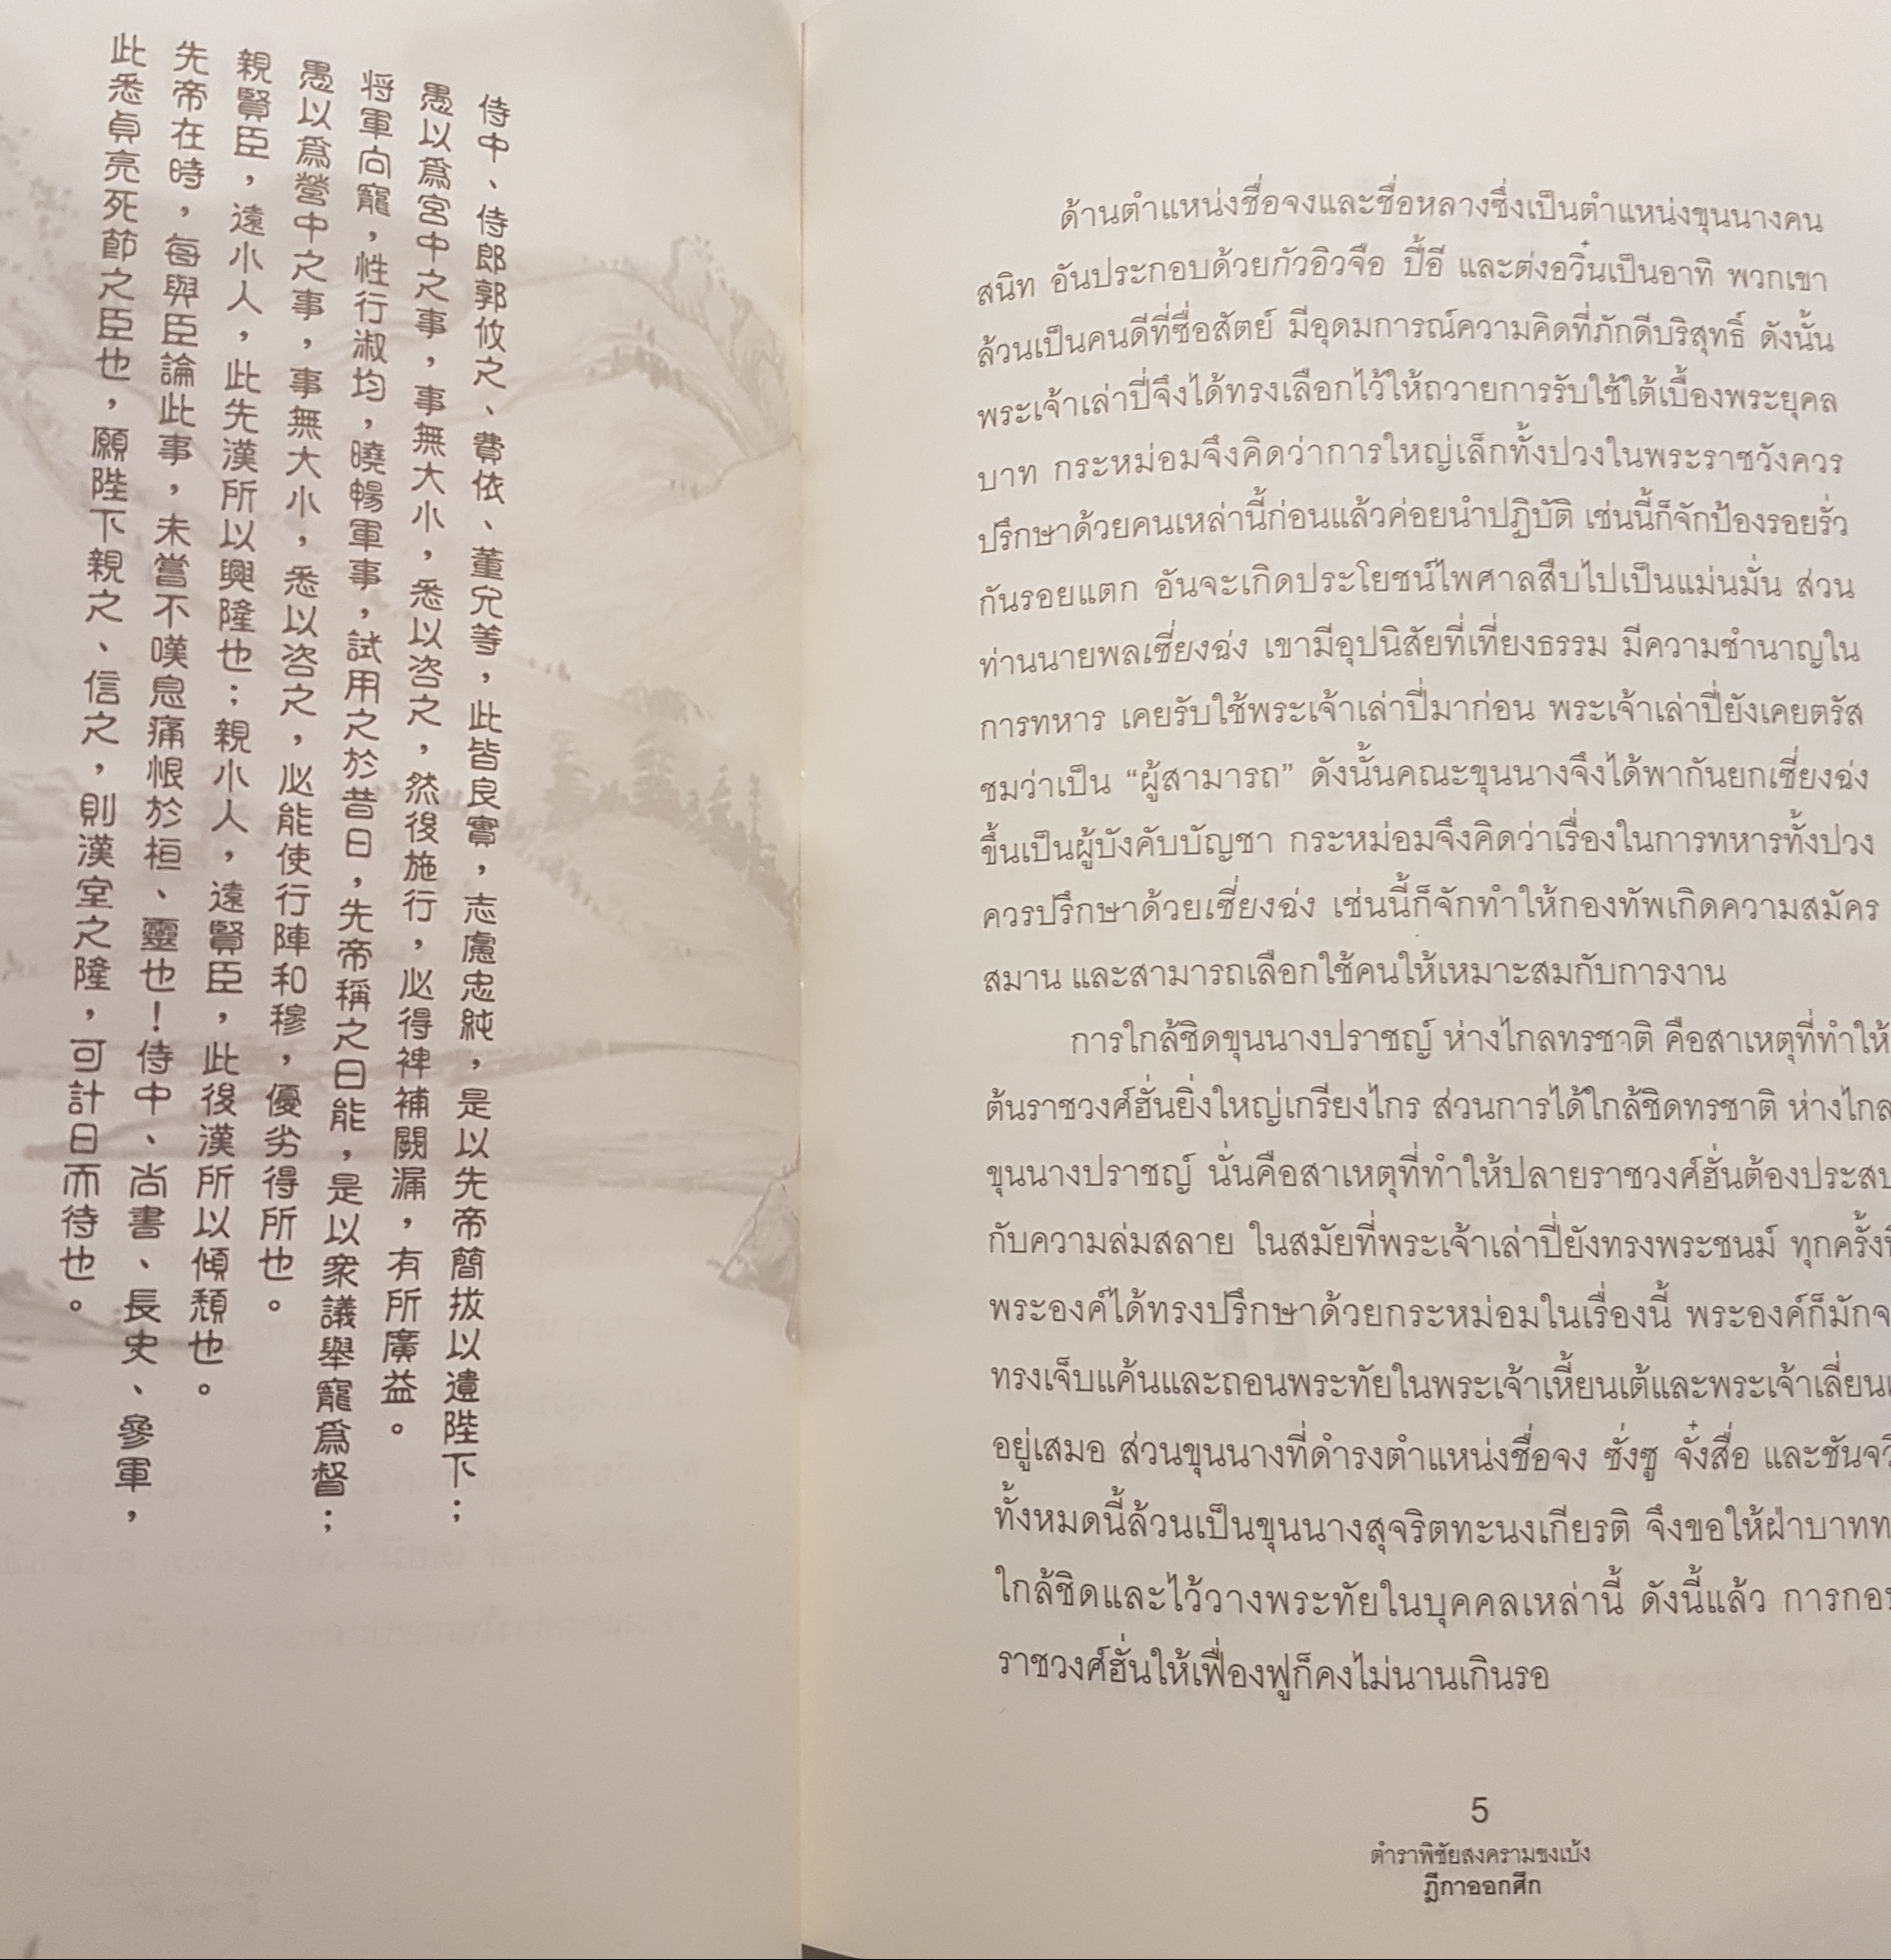 侍中、侍郎郭攸之、費依、董允等，此皆良實，志慮忠純，是以先帝簡拔以遺陛下；
愚以為宮中之事，事無大小，悉以咨之，然後施行，必得裨補闕漏，有所廣益。
將軍向寵，性行淑均，曉暢軍事，試用之於昔日，先帝稱之曰能，是以衆議舉寵為督；
愚以為營中之事，事無大小，悉以咨之，必能使行陣和穆，優劣得所也。
親賢臣，遠小人，此先漢所以興隆也；親小人，遠賢臣，此後漢所以傾頹也。
先帝在時，每與臣論此事，未嘗不嘆息痛恨於桓、靈也！侍中、尚書、長史、參軍，
此悉貞亮死節之臣也，願陛下親之、信之，則漢室之隆，可計日而待也。
ด้านตำแหน่งชื่อจงและชื่อหลางซึ่งเป็นตำแหน่งขุนนางคน
สนิท อันประกอบด้วยกัวอิวจือ ปี้อี และต่งอวิ๋นเป็นอาทิ พวกเขา
ล้วนเป็นคนดีที่ซื่อสัตย์ มีอุดมการณ์ความคิดที่ภักดีบริสุทธิ์ ดังนั้น
พระเจ้าเล่าปี่จึงได้ทรงเลือกไว้ให้ถวายการรับใช้ใต้เบื้องพระยุคล
บาท กระหม่อมจึงคิดว่าการใหญ่เล็กทั้งปวงในพระราชวังควร
ปรึกษาด้วยคนเหล่านี้ก่อนแล้วค่อยนำปฏิบัติ เช่นนี้ก็จักป้องรอยรั่ว
กันรอยแตก อันจะเกิดประโยชน์ไพศาลสืบไปเป็นแม่นมั่น ส่วน
ท่านนายพลเซี่ยงฉ่ง เขามีอุปนิสัยที่เที่ยงธรรม มีความชำนาญใน
การทหาร เคยรับใช้พระเจ้าเล่าปี่มาก่อน พระเจ้าเล่าปี่ยังเคยตรัส
ชมว่าเป็น “ผู้สามารถ” ดังนั้นคณะขุนนางจึงได้พากันยกเซี่ยงฉ่ง
ขึ้นเป็นผู้บังคับบัญชา กระหม่อมจึงคิดว่าเรื่องในการทหารทั้งปวง
ควรปรึกษาด้วยเซี่ยงฉ่ง เช่นนี้ก็จักทำให้กองทัพเกิดความสมัคร
สมาน และสามารถเลือกใช้คนให้เหมาะสมกับการงาน
การใกล้ชิดขุนนางปราชญ์ ห่างไกลทรชาติ คือสาเหตุที่ทำให้
ต้นราชวงศ์ฮั่นยิ่งใหญ่เกรียงไกร ส่วนการได้ใกล้ชิดทรชาติ ห่างไกล
ขุนนางปราชญ์ นั่นคือสาเหตุที่ทำให้ปลายราชวงศ์ฮั่นต้องประสบ
กับความล่มสลาย ในสมัยที่พระเจ้าเล่าปี่ยังทรงพระชนม์ ทุกครั้ง
พระองค์ได้ทรงปรึกษาด้วยกระหม่อมในเรื่องนี้ พระองค์ก็มักจ
ทรงเจ็บแค้นและถอนพระทัยในพระเจ้าเหี้ยนเต้และพระเจ้าเลี่ยน
อยู่เสมอ ส่วนขุนนางที่ดำรงตำแหน่งชื่อจง ซั่งซู จั๋งสื่อ และชันจวิ
ทั้งหมดนี้ล้วนเป็นขุนนางสุจริตทะนงเกียรติ จึงขอให้ฝ่าบาทท
ใกล้ชิดและไว้วางพระทัยในบุคคลเหล่านี้ ดังนี้แล้ว การกอบ
ราชวงศ์ฮั่นให้เฟื่องฟูก็คงไม่นานเกินรอ
5
ตำราพิชัยสงครามขงเบ้ง
ฎีกาออกศึก